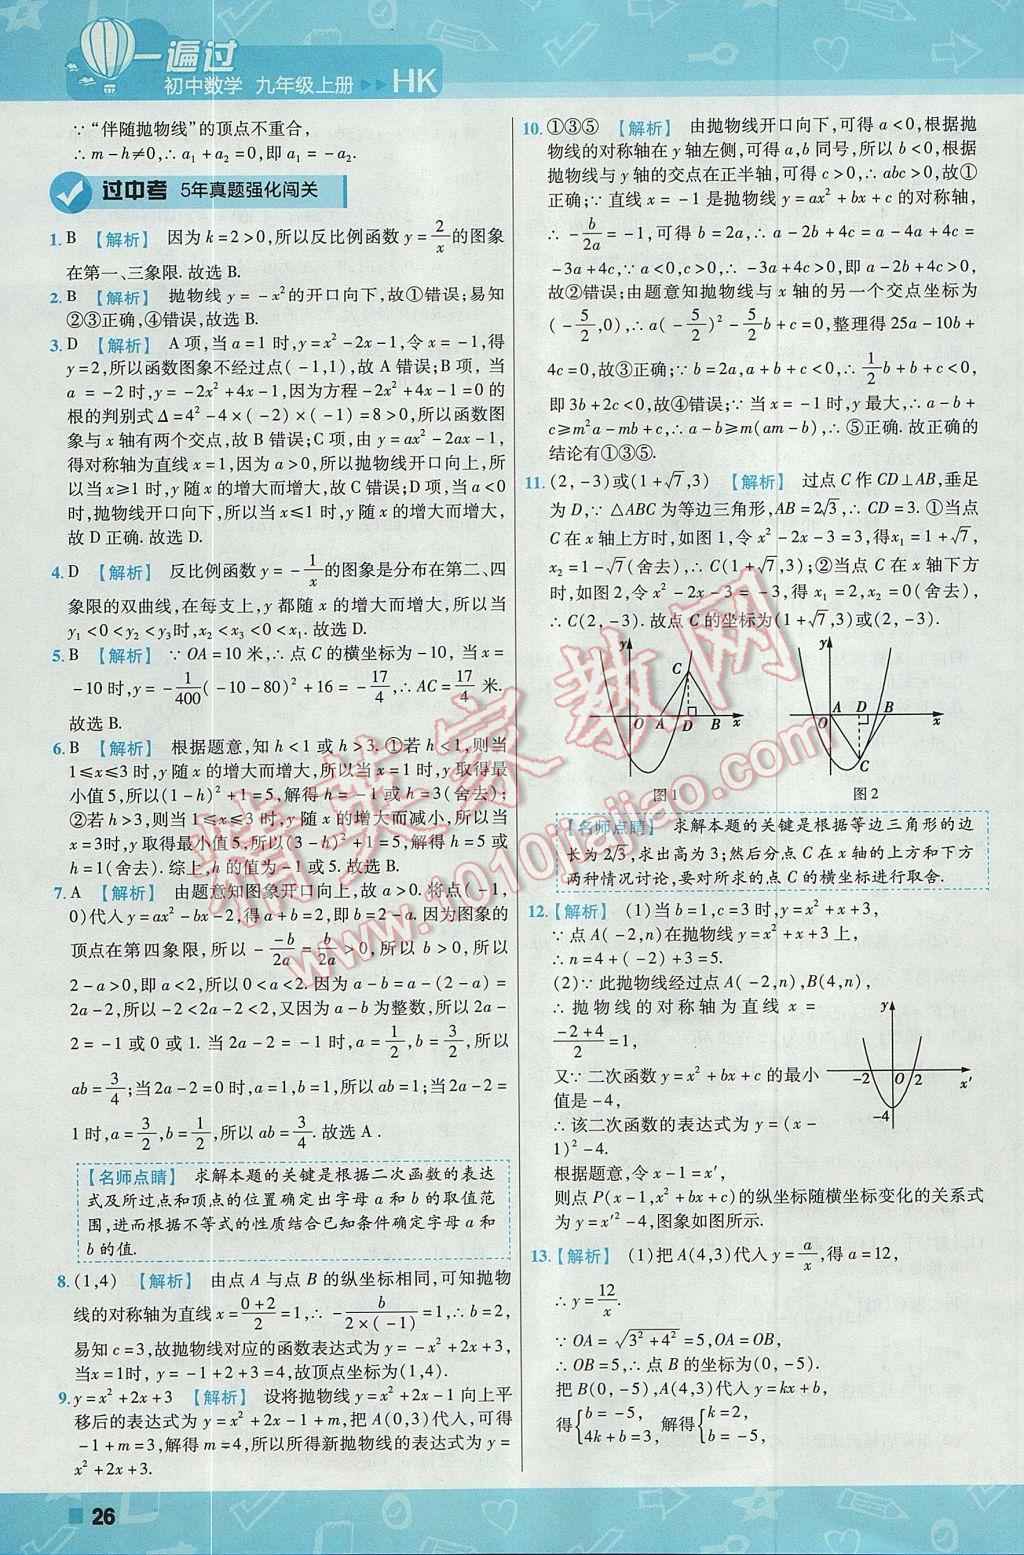 一遍过
初中数学 九年级上册 HK
∵“伴随抛物线”的顶点不重合,
∴ m-h≠0,∴ a₁+a₂=0,即 a₁=-a₂.
过中考 5年真题强化闯关
1. B 【解析】 因为 k=2>0,所以反比例函数 y=2/x 的图象
在第一、三象限. 故选 B.
2. B 【解析】 抛物线 y=-x²的开口向下,故①错误;易知
②③正确,④错误,故选 B.
3. D 【解析】 A项,当 a=1时,y=x²-2x-1,令 x=-1,得
y=2,所以函数图象不经过点(-1,1),故 A 错误;B项,当
a=-2时,y=-2x²+4x-1,因为方程-2x²+4x-1=0的
根的判别式Δ=4²-4×(-2)×(-1)=8>0,所以函数图
象与 x 轴有两个交点,故 B 错误;C项,由 y=ax²-2ax-1,
得对称轴为直线 x=1,因为 a>0,所以抛物线开口向上,所
以当 x≥1 时,y随 x 的增大而增大,故 C 错误;D项,当 a<0
时,抛物线开口向下,所以当 x≤1 时,y 随 x 的增大而增大,
故 D 正确. 故选 D.
4. D 【解析】 反比例函数 y=-1/x 的图象是分布在第二、四
象限的双曲线,在每支上,y 都随 x 的增大而增大,所以当
y₁<0<y₂<y₃时,x₂<x₃<0<x₁. 故选 D.
5. B 【解析】 ∵ OA=10 米,∴ 点 C 的横坐标为-10, 当 x=
-10时,y=-1/400(-10-80)²+16=-17/4,∴ AC=17/4 米.
故选 B.
6. B 【解析】 根据题意,知 h<1 或 h>3. ①若 h<1,则当
1≤x≤3 时,y 随 x 的增大而增大,所以当 x=1 时,y 取得最
小值 5,所以(1-h)²+1=5,解得 h=-1 或 h=3(舍去);
②若 h>3,则当 1≤x≤3 时,y 随 x 的增大而减小,所以当
x=3时,y 取得最小值 5,所以(3-h)²+1=5,解得 h=5 或
h=1(舍去). 综上,h 的值为-1 或5. 故选 B.
7. A 【解析】 由题意知图象开口向上,故 a>0. 将点(-1,
0)代入 y=ax²-bx-2,得 a+b=2,即 b=2-a. 因为图象的
顶点在第四象限,所以 - -b/2a = b/2a >0,所以 b>0,所以
2-a>0,即 a<2,所以 0<a<2. 因为 a-b=a-(2-a)=
2a-2,所以-2<2a-2<2,又因为 a-b 为整数,所以 2a-
2=-1 或 0 或 1. 当 2a-2=-1 时,a=1/2,b=3/2,所以
ab=3/4;当 2a-2=0 时,a=1,b=1,所以 ab=1;当 2a-2=
1时,a=3/2,b=1/2,所以 ab=3/4. 故选 A.
【名师点睛】 求解本题的关键是根据二次函数的表达
式及所过点和顶点的位置确定出字母 a 和 b 的取值范
围,进而根据不等式的性质结合已知条件确定字母 a 和
b 的值.
8. (1,4) 【解析】 由点 A 与点 B 的纵坐标相同,可知抛物
线的对称轴为直线 x=(0+2)/2=1,∴ -b/(2×(-1))=1,∴ b=2,
易知 c=3,故抛物线对应的函数表达式为 y=-x²+2x+3,
当 x=1时,y=-1+2+3=4,故顶点坐标为(1,4).
9. y=x²+2x+3 【解析】 设将抛物线 y=x²+2x-1 向上平
移后的表达式为 y=x²+2x-1+m,把 A(0,3)代人,可得
-1+m=3,解得 m=4,所以所得新抛物线的表达式为 y=
x²+2x+3.
10. ①③⑤ 【解析】 由抛物线开口向下,可得 a<0,根据抛
物线的对称轴在 y 轴左侧,可得 a,b 同号,所以 b<0,根据
抛物线与 y 轴的交点在正半轴,可得 c>0,∴ abc>0,故①
正确;∵ 直线 x=-1 是抛物线 y=ax²+bx+c 的对称轴,
∴ -b/2a=-1,可得 b=2a,∴ a-2b+4c=a-4a+4c=
-3a+4c,∵ a<0,c>0,∴ -3a+4c>0,即 a-2b+4c>0,
故②错误;由题意知抛物线与 x 轴的另一个交点坐标为
(-5/2,0),∴ a(-5/2)²-5/2b+c=0,整理得 25a-10b+
4c=0,故③正确;∵ b=2a,a+b+c<0,∴ 1/2b+b+c<0,
即 3b+2c<0,故④错误;∵ 当 x=-1 时,y 最大,∴ a-b+
c≥m²a-mb+c,∴ a-b≥m(am-b),∴ ⑤正确. 故正确的
结论有①③⑤.
11. (2,-3)或(1+√7,3) 【解析】 过点 C 作 CD⊥AB,垂足
为 D,∵ △ABC 为等边三角形,AB=2√3,∴ CD=3. ①当点
C 在 x 轴上方时,如图 1,令 x²-2x-3=3,得 x₁=1+√7,
x₂=1-√7(舍去),∴ C(1+√7,3);②当点 C 在 x 轴下方
时,如图 2,令 x²-2x-3=-3,得 x₁=2,x₂=0(舍去),
∴ C(2,-3). 故点 C 的坐标为(1+√7,3)或(2,-3).
y C O A D B x
图 1
y A D B O x C
图 2
【名师点睛】 求解本题的关键是根据等边三角形的边
长为 2√3,求出高为 3;然后分点 C 在 x 轴的上方和下方
两种情况讨论,要对所求的点 C 的横坐标进行取舍.
12. 【解析】 (1)当 b=1,c=3 时,y=x²+x+3,
∵ 点 A(-2,n)在抛物线 y=x²+x+3 上,
∴ n=4+(-2)+3=5.
(2)∵ 此抛物线经过点 A(-2,n),B(4,n),
∴ 抛物线的对称轴为直线 x=
(-2+4)/2=1,
又∵ 二次函数 y=x²+bx+c 的最小
值是-4,
∴ 该二次函数的表达式为 y=(x-
1)²-4.
y -2 O 2 x′ -4
根据题意,令 x-1=x′,
则点 P(x-1,x²+bx+c)的纵坐标随横坐标变化的关系式
为 y=x′²-4,图象如图所示.
13. 【解析】 (1)把 A(4,3)代人 y=a/x,得 a=12,
∴ y=12/x.
∵ OA=√(3²+4²)=5,OA=OB,
∴ OB=5,∴ 点 B 的坐标为(0,-5).
把 B(0,-5),A(4,3)代入 y=kx+b,
得{b=-5, 4k+b=3, 解得{k=2, b=-5,
26
精英家教网
www.1010jiajiao.com